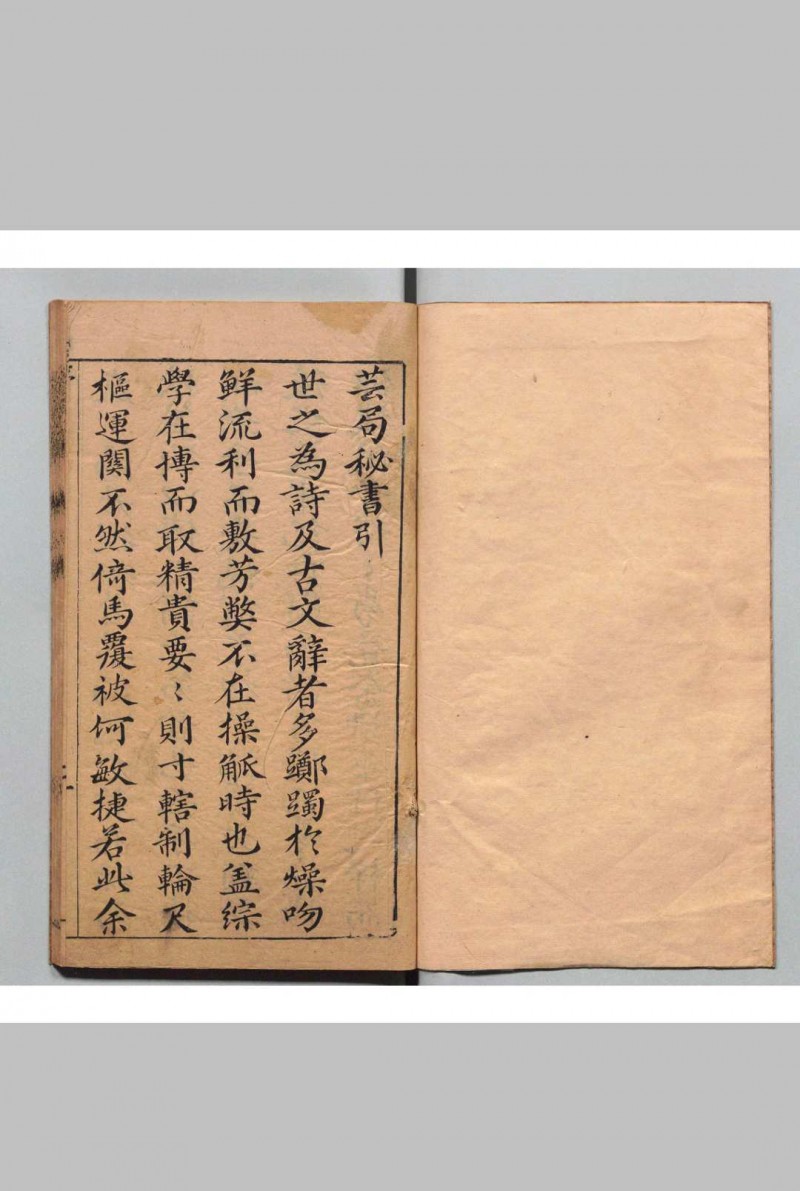 芸局秘書引
世之為詩及古文辭者多躑躅於燥吻
鮮流利而敷芳獘不在操觚時也盖綜
學在博而取精貴要〻則寸轄制輪尺
樞運関不然倚馬覆被何敏捷若此余